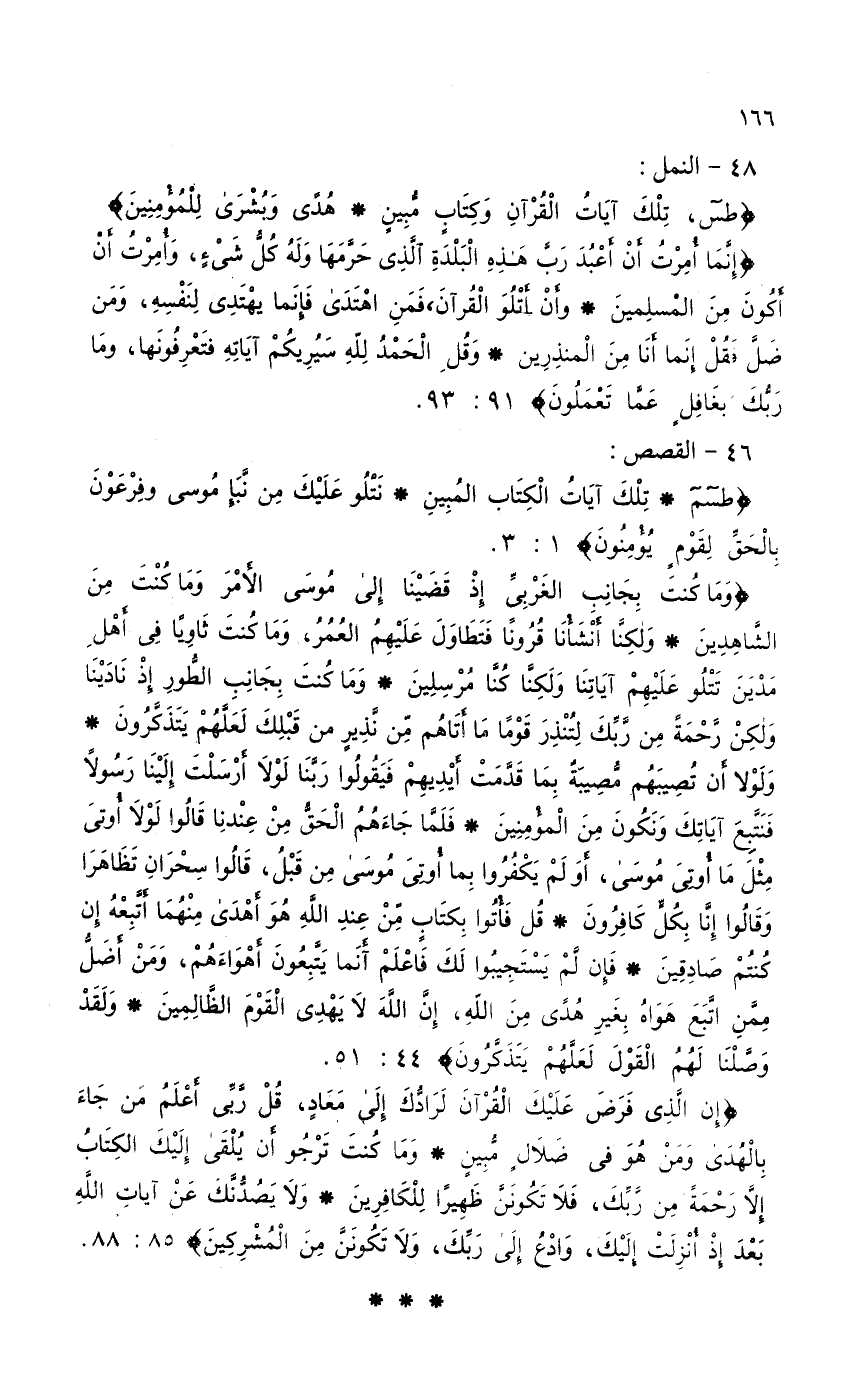 ١٦٦
٤٨ - النمل :
﴿طسٓ، تِلْكَ آيَاتُ الْقُرْآنِ وَكِتَابٍ مُّبِينٍ * هُدًى وَبُشْرَىٰ لِلْمُؤْمِنِينَ﴾
﴿إِنَّمَا أُمِرْتُ أَنْ أَعْبُدَ رَبَّ هَـٰذِهِ الْبَلْدَةِ الَّذِى حَرَّمَهَا وَلَهُ كُلُّ شَىْءٍ، وَأُمِرْتُ أَنْ
أَكُونَ مِنَ الْمْسلِمينَ * وأَنْ أَتْلُوَ الْقُرآنَ، فَمَنِ اهْتَدَىٰ فَإِنَما يهْتَدِى لِنَفْسِهِ، وَمَن
ضَلَّ فَقُلْ إِنَما أَنَا مِنَ الْمنذِرِين * وَقُلِ الْحَمْدُ لِلَّهِ سَيُرِيكُمْ آيَاتِهِ فَتَعْرِفُونَها، وَما
رَبُّكَ بغَافِلٍ عَمَّا تَعْمَلُونَ﴾ ٩١ : ٩٣.
٤٦ - القصص :
﴿طسٓمٓ * تِلْكَ آيَاتُ الْكِتَاب المُبِينِ * نَتْلُو عَلَيْكَ مِن نَّبَإِ مُوسى وفِرْعَوْنَ
بِالْحَقِّ لِقَوْمٍ يُؤْمِنُونَ﴾ ١ : ٣.
﴿وَمَا كُنتَ بِجَانِبِ الغَرْبِىِّ إِذْ قَضَيْنَا إِلىٰ مُوسَى الأَمْرَ وَمَا كُنْتَ مِنَ
الشَّاهِدِينَ * وَلَكِنَّا أَنْشَأْنَا قُرُونًا فَتَطَاوَلَ عَلَيْهِمُ العُمُرُ، وَمَا كُنتَ ثَاوِيًا فِى أَهْلِ
مَدْيَنَ تَتْلُو عَلَيْهِمْ آيَاتِنَا وَلَكِنَّا كُنَّا مُرْسِلِينَ * وَمَا كُنتَ بِجَانِبِ الطُّورِ إِذْ نَادَيْنَا
وَلَكِنْ رَّحْمَةً مِن رَّبِّكَ لِتُنْذِرَ قَوْمًا مَا أَتَاهُم مِّن نَّذِيرٍ من قَبْلِكَ لَعَلَّهُمْ يَتَذَكَّرُونَ *
وَلَوْلا أَن تُصِيبَهُم مُّصِيبَةٌ بِمَا قَدَّمَتْ أَيْدِيهِمْ فَيَقُولُوا رَبَّنَا لَوْلَا أَرْسَلْتَ إِلَيْنَا رَسُولاً
فَنَتَّبِعَ آيَاتِكَ وَنَكُونَ مِنَ الْمؤْمِنِينَ * فَلَمَّا جَاءَهُمُ الْحَقُّ مِنْ عِنْدِنا قَالُوا لَوْلَا أُوتىَ
مِثْلَ مَا أُوتِىَ مُوسَىٰ، أَوَ لَمْ يَكْفُرُوا بِما أُوتِىَ مُوسَىٰ مِن قَبْلُ، قَالُوا سِحْرَانِ تَظَاهَرَا
وَقَالُوا إِنَّا بِكُلٍّ كَافِرُونَ * قُل فَأْتُوا بِكتَابٍ مِّنْ عِندِ اللَّهِ هُوَ أَهْدَىٰ مِنْهُمَا أَتَّبِعْهُ إِن
كُنتُمْ صَادِقِينَ * فَإِن لَّمْ يَسْتَجِيبُوا لَكَ فَاعْلَمْ أَنما يَتَّبِعُونَ أَهْوَاءَهُمْ، وَمَنْ أَضَلُّ
مِمَّنِ اتَّبَعَ هَوَاهُ بِغَيرِ هُدًى مِنَ اللَّهِ، إِنَّ اللَّهَ لَا يَهْدِى الْقَوْمَ الظَّالِمِينَ * وَلَقَدْ
وَصَّلْنَا لَهُمُ الْقَوْلَ لَعَلَّهُمْ يَتَذَكَّرُونَ﴾ ٤٤ : ٥١.
﴿إِن الَّذِى فَرَضَ عَلَيْكَ الْقُرْآنَ لَرَادُّكَ إِلَىٰ مَعَادٍ، قُلْ رَّبِّى أَعْلَمُ مَن جَاءَ
بِالْهُدَىٰ وَمَنْ هُوَ فى ضَلَالٍ مُّبِينٍ * وَمَا كُنتَ تَرْجُو أَن يُلْقَىٰ إِلَيْكَ الكِتَابُ
إِلَّا رَحْمَةً مِن رَّبِّكَ، فَلَا تَكُونَنَّ ظَهِيرًا لِلْكَافِرِينَ * وَلَا يَصُدُّنَّكَ عَنْ آيَاتِ اللَّهِ
بَعْدَ إِذْ أُنْزِلَتْ إِلَيْكَ، وَادْعُ إِلَىٰ رَبِّكَ، وَلَا تَكُونَنَّ مِنَ الْمُشْرِكِينَ﴾ ٨٥ : ٨٨.
* * *